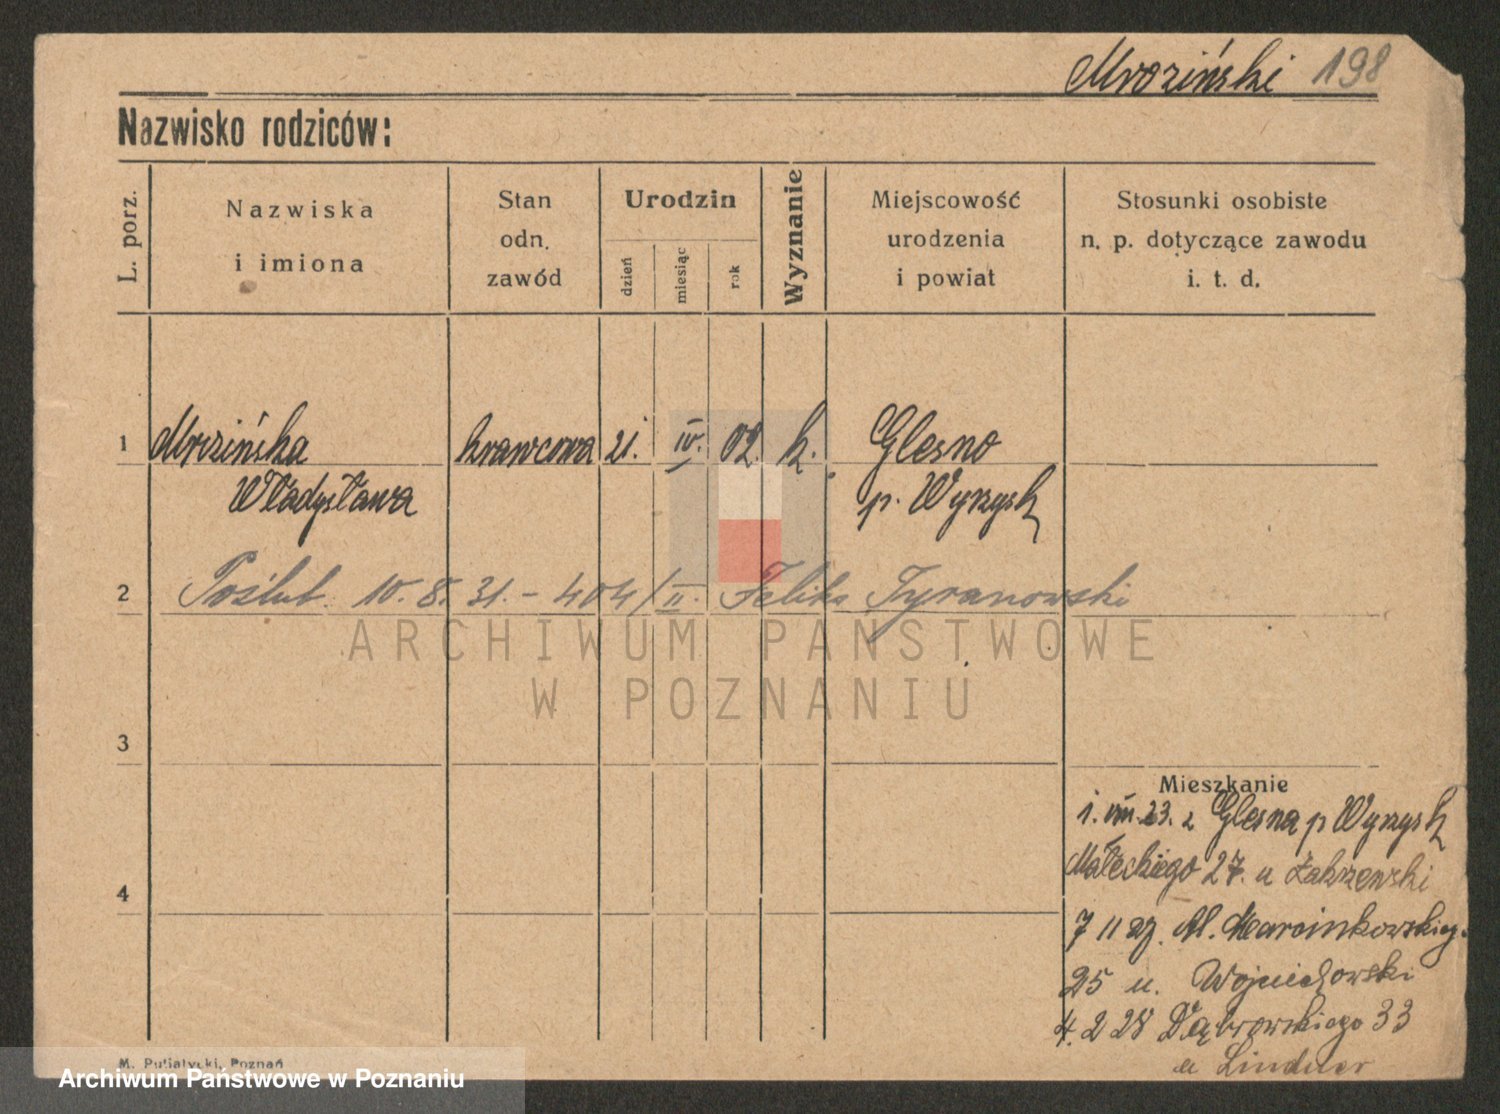 Mroziński 198
Nazwisko rodziców:
L. porz.
Nazwiska
i imiona
Stan
odn.
zawód
Urodzin
dzień
miesiąc
rok
Wyznanie
Miejscowość
urodzenia
i powiat
Stosunki osobiste
n. p. dotyczące zawodu
i. t. d.
1 Mrozińska krawcowa 21. IV. 02. k. Glesno
Władysława p. Wyrzysk
2 Poślub. 10. 8. 31. - 404/II. Feliks Tyranowski
ARCHIWUM PAŃSTWOWE
W POZNANIU
3
Mieszkanie
1. VIII. 23. z Glesna p Wyrzysk
Małeckiego 27. u Zakrzewski
4
7 11 27. Al. Marcinkowskieg.
25 u. Wojciechowski
4. 2 28 Dąbrowskiego 33
u Lindner
M. Putiatycki, Poznań
Archiwum Państwowe w Poznaniu